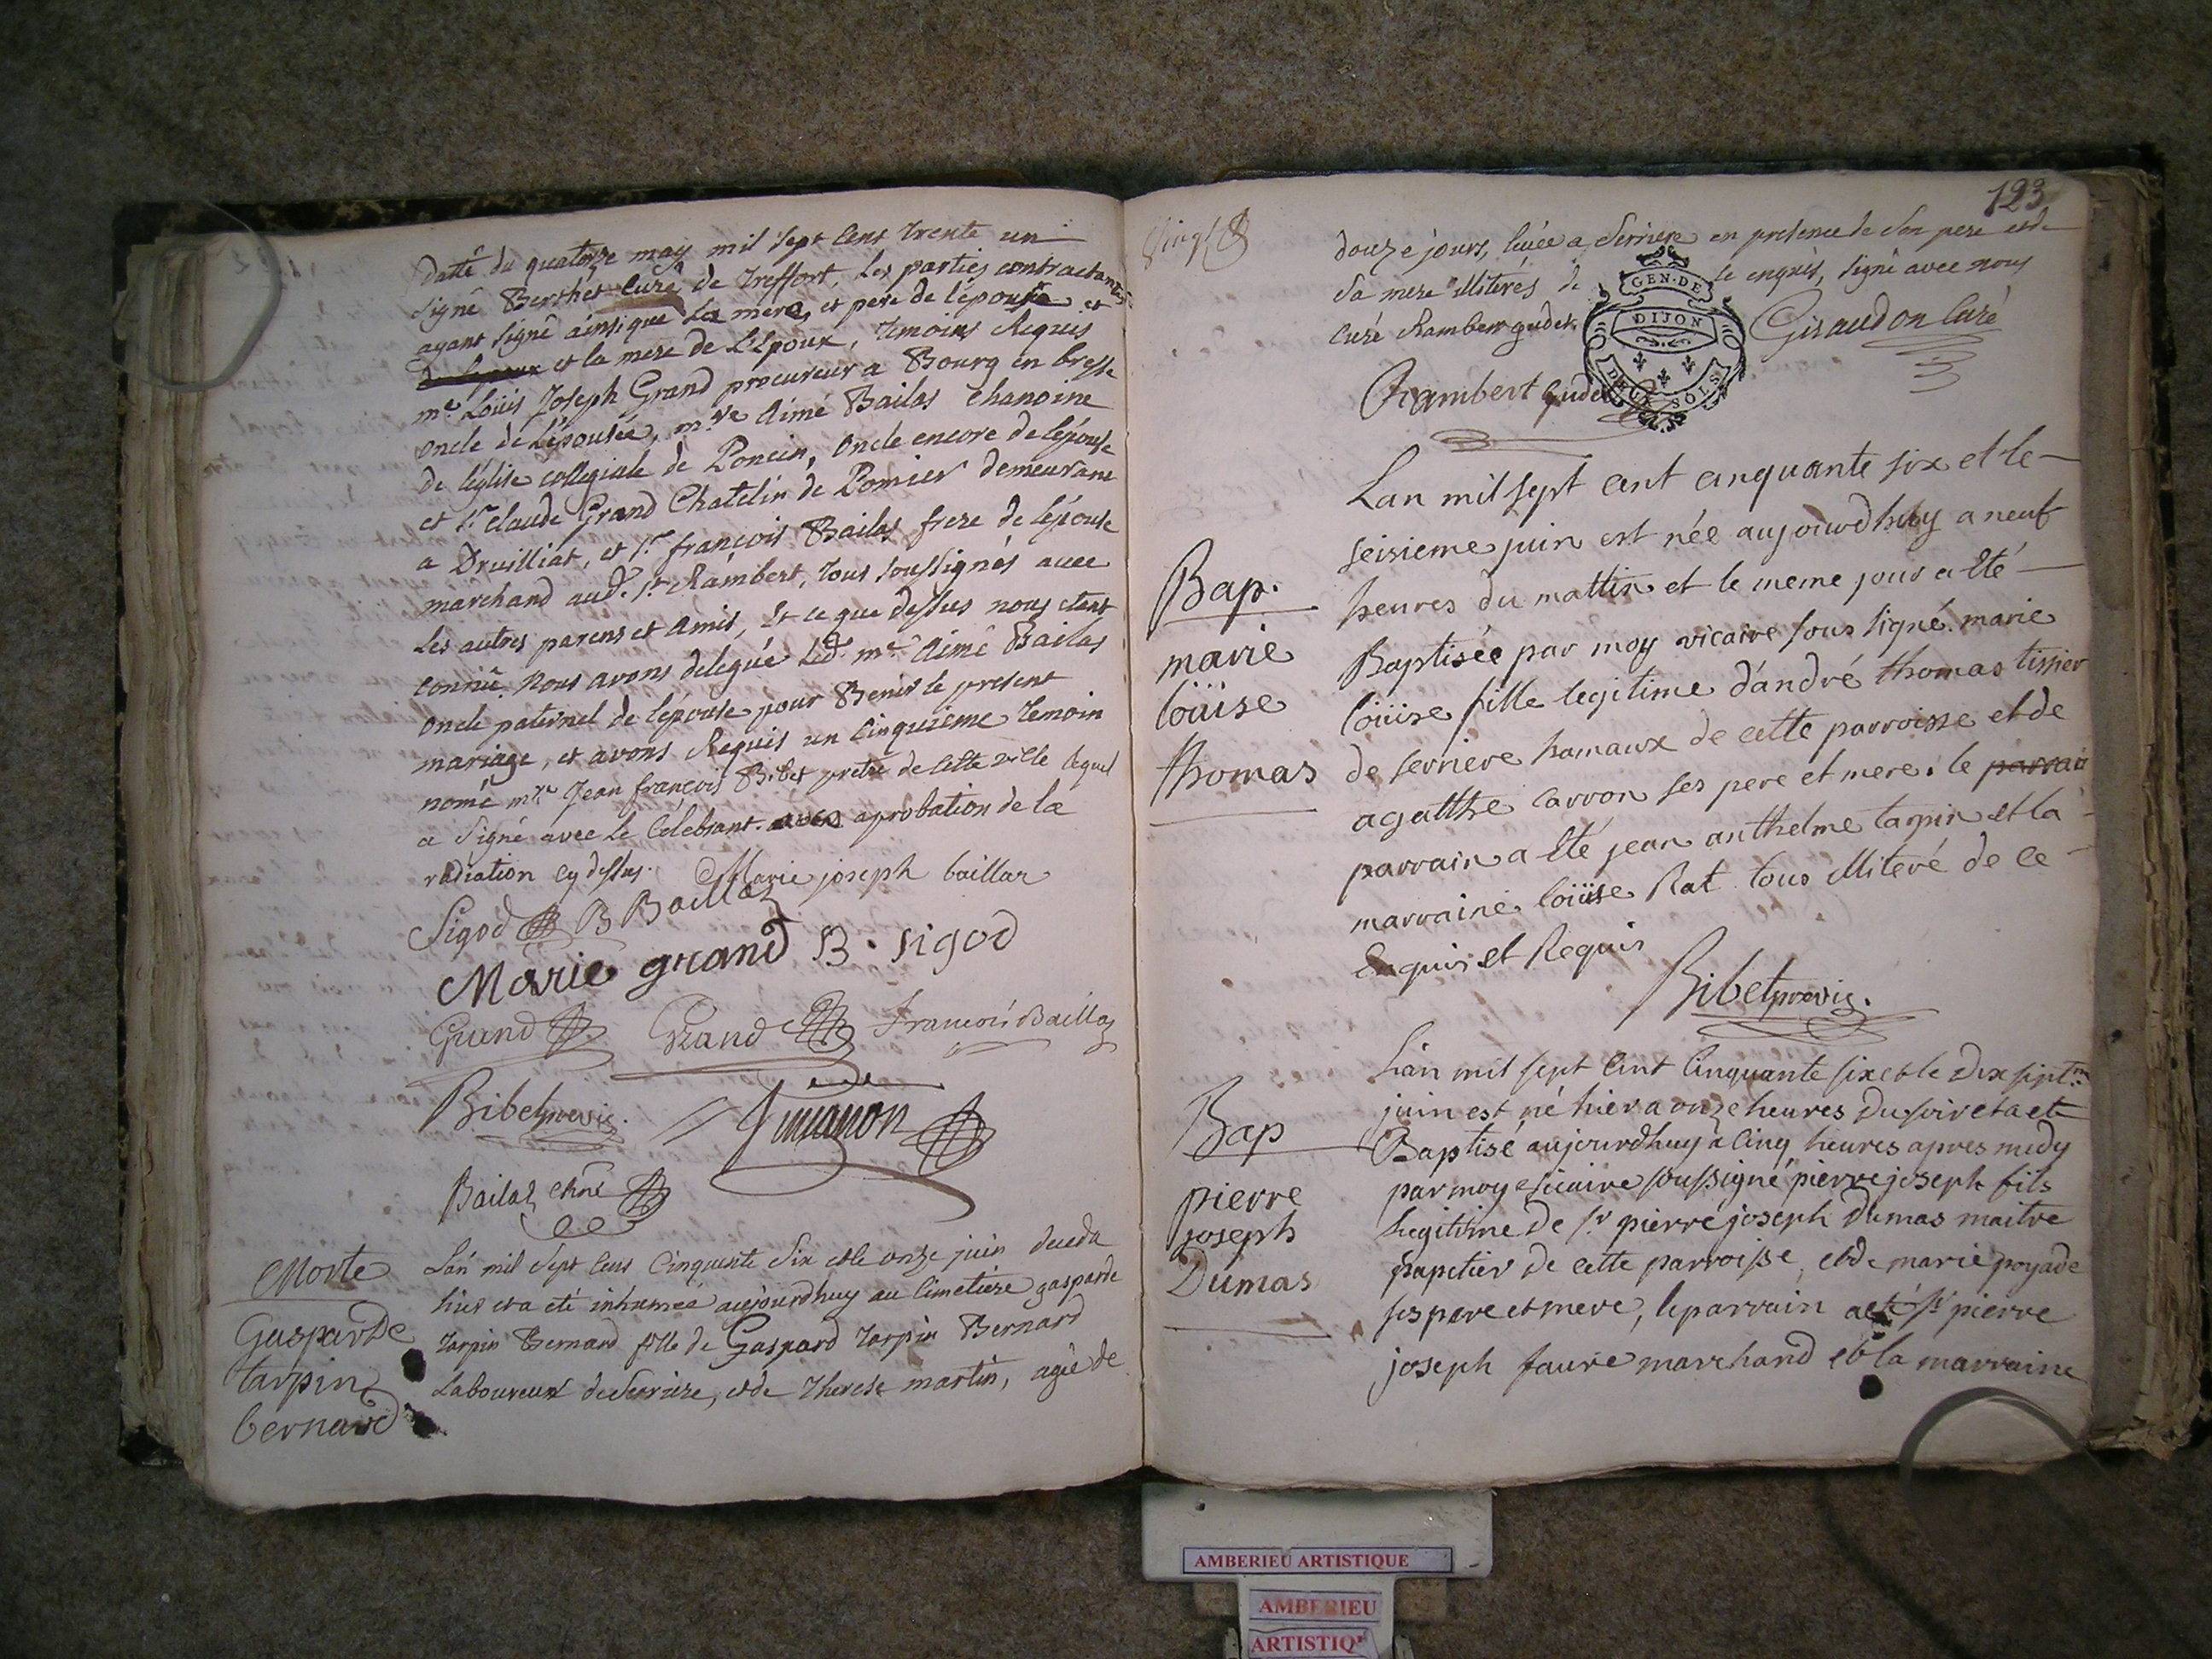 datté du quatorze may mil sept cent trente un
signé Berthet curé de treffort, les parties contractantes
ayant signé ainsi que la mere, et pere de l'épouse et
et la mere de L'Epoux, temoins Requis
me. Loüis Joseph Grand procureur a Bourg en bresse
oncle de l'épousée, mre Aimé Bailas chanoine
de l'église collegiale de Poncin, oncle encore de lépouse
et sr. claude Grand Chatelin de Pomier demeurant
a Druilliat, et sr. françois Bailas frere de lépouse
marchand aud. st. Rambert, tous soussignés avec
les autres parens et amis, et ce que dessus nous etant
connû, nous avons delegué led. me. Aimé Bailas
oncle paternel de lépouse pour Benir le present
mariage, et avons Requis un cinquieme temoin
nomé mre Jean françois Bibet pretre de cette ville lequel
a signé avec le celebrant. aprobation de la
radiation cy dessus. Marie joseph baillar
Sigod B Baillaz
Marie grand B. sigod
Grand Grand francois Baillaz
Bibet
Bailaz chne
Morte
Gasparde
tarpin
bernard
Lan mil sept cens cinquante six et le onze juin deceda
hier et a eté inhumée aujourdhuy au cimetiere gasparde
tarpin Bernard fille de Gaspard tarpin Bernard
Laboureur de Serriere, et de therese martin, agée de
123
douze jours, levée a Serriere en presence de son pere et de
sa mere illiterés de ce enquis, signé avec nous
curé Rambert gudet.
Giraudon curé
Rambert gudet
GEN. DE
DIJON
DEUX SOLS
Bap.
marie
loüise
thomas
Lan mil sept cent cinquante six et le
seisieme juin est née aujourdhuy a neuf
heures du mattin et le meme jour a Eté
Baptisée par moy vicaire sous signé marie
loüise fille legitime d'andré thomas tissier
de serriere hamaux de cette parroisse et de
agatthe carron ses pere et mere. le parrain
parrain a Eté jean anthelme tarpin et la
marraine loüise Rat tous illiteré de ce
Enquis et Requis
Bibet
Bap
pierre
joseph
Dumas
Lan mil sept cent cinquante six et le dix sept.m
juin est né hier a onze heures du soir et a eté
Baptisé aujourdhuy a cinq heures apres midy
par moy vicaire soussigné pierre joseph fils
legitime de sr pierre joseph dumas maitre
papetier de cette parroisse, et de marie poyade
ses pere et mere, le parrain a eté sr pierre
joseph faure marchand et la marraine
AMBERIEU ARTISTIQUE
AMBERIEU
ARTISTIQ